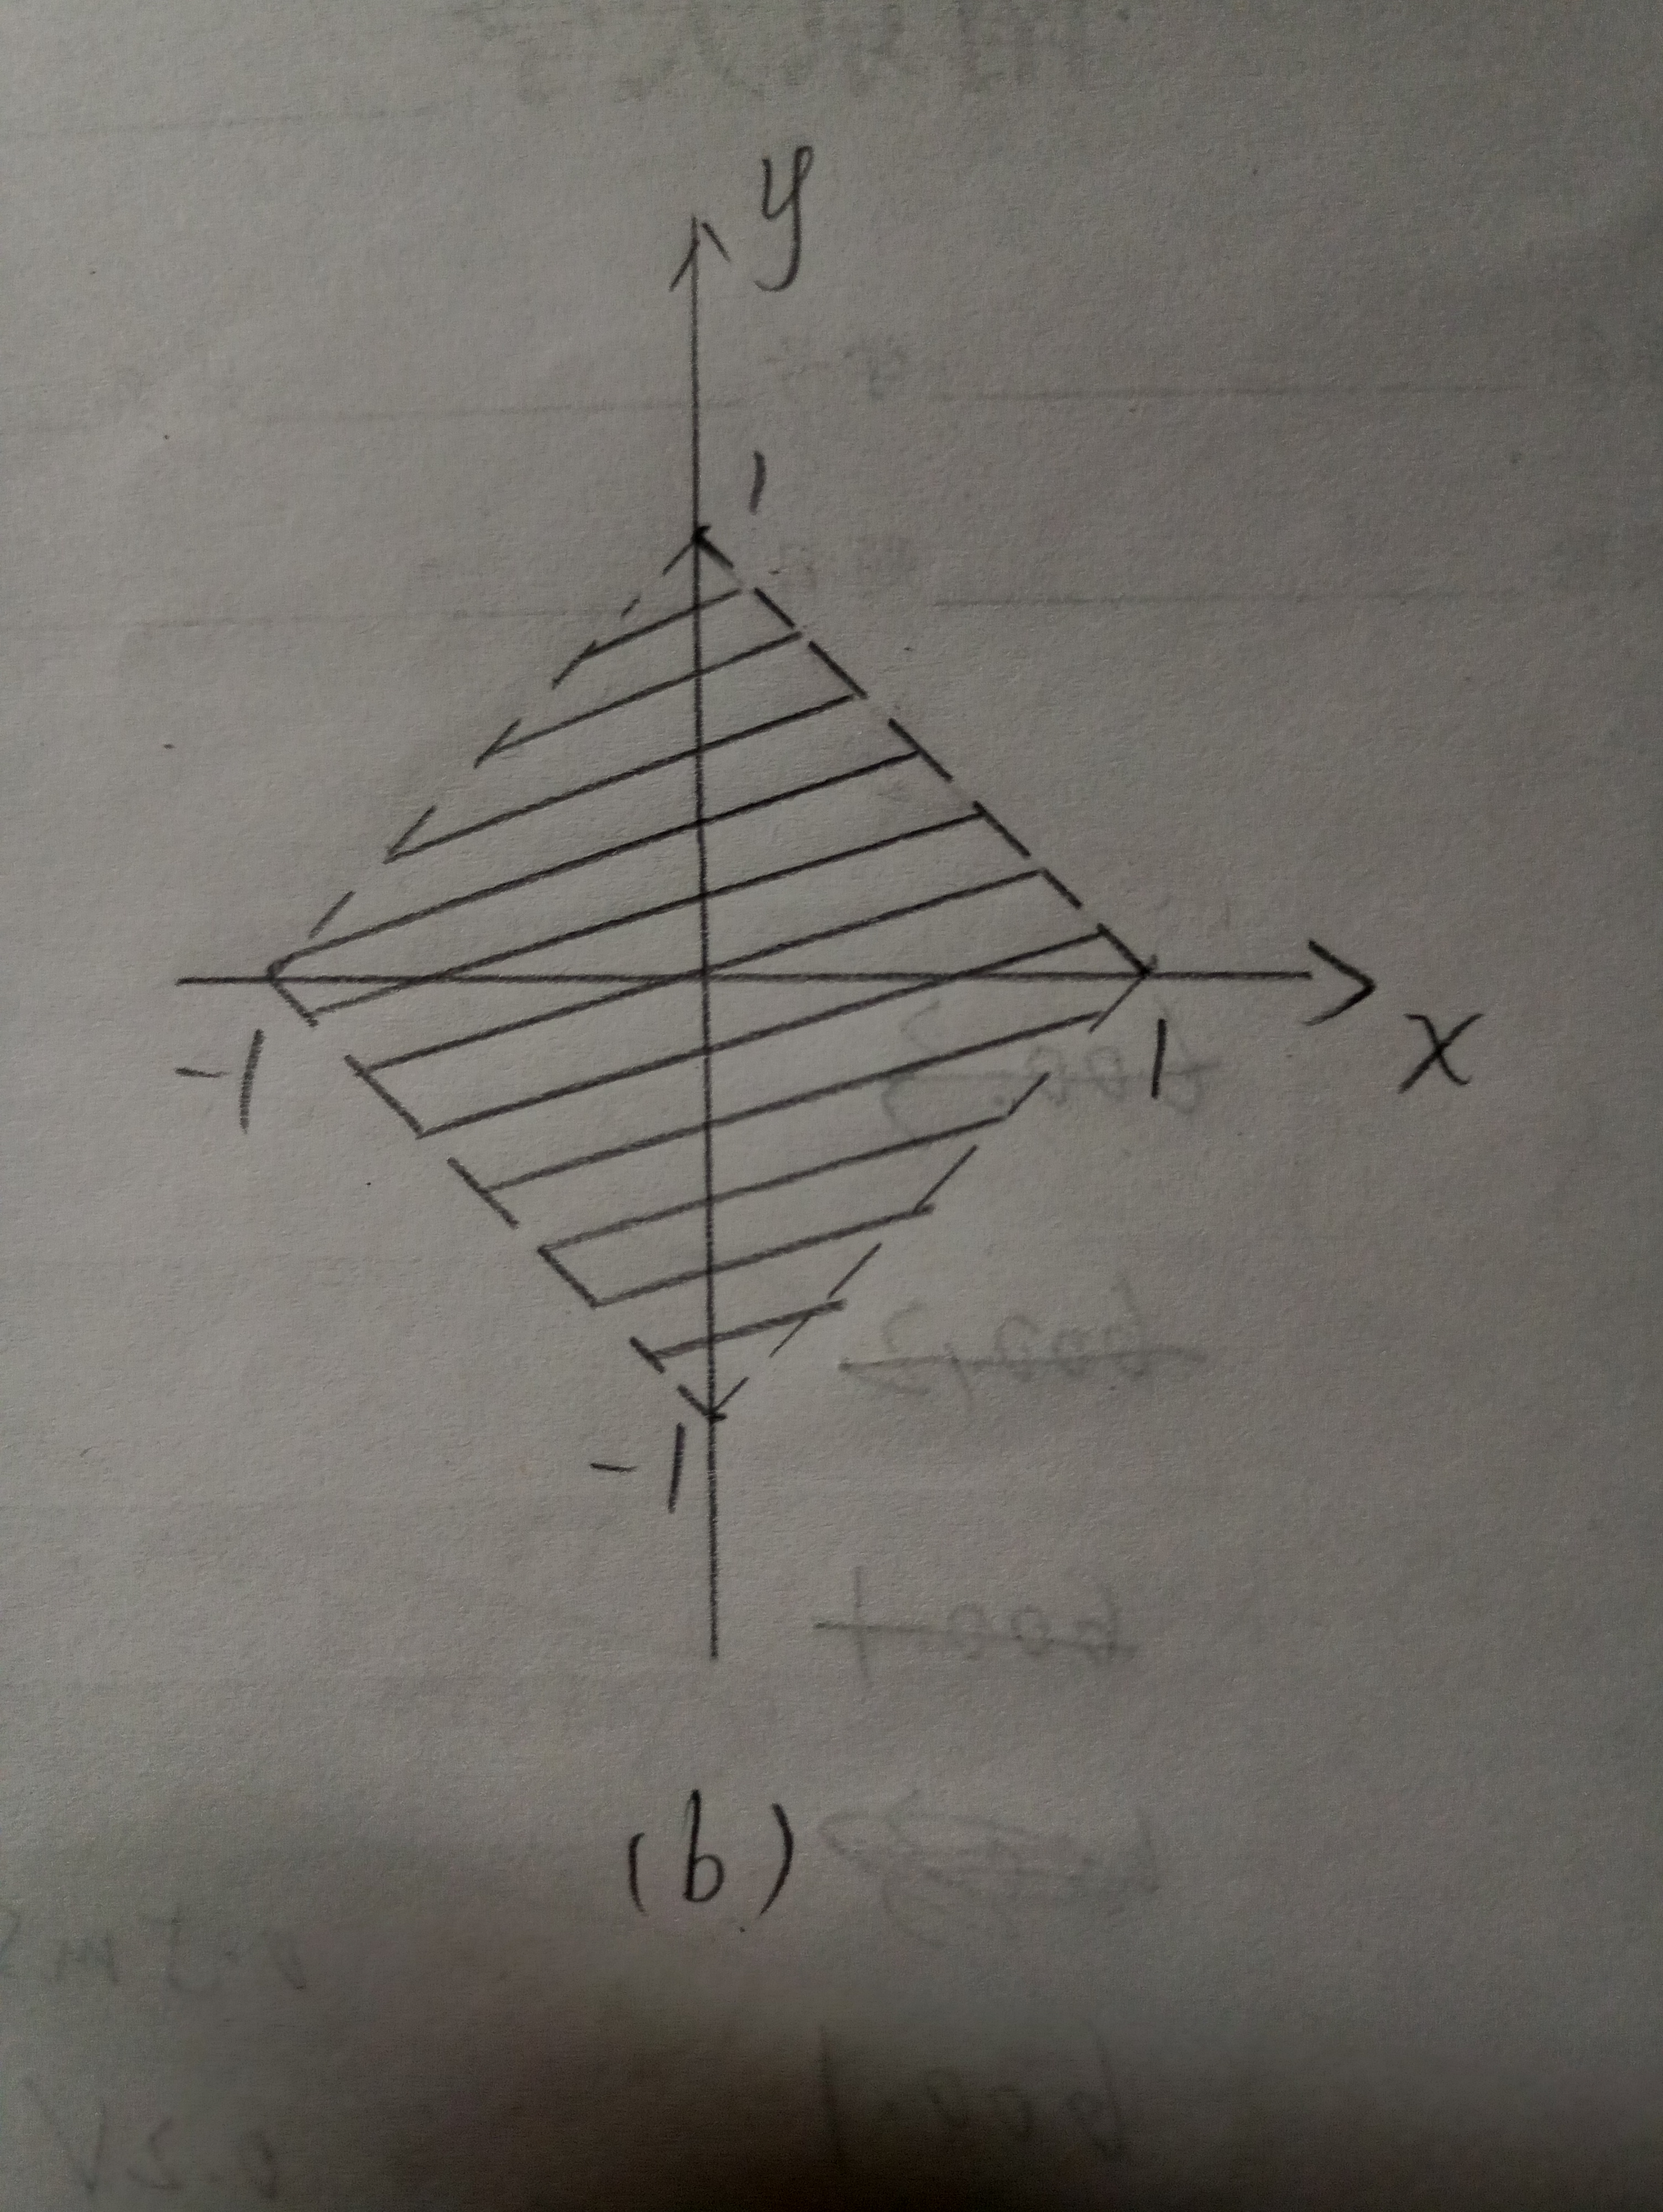 y
1
-1 1 x
-1
(b)